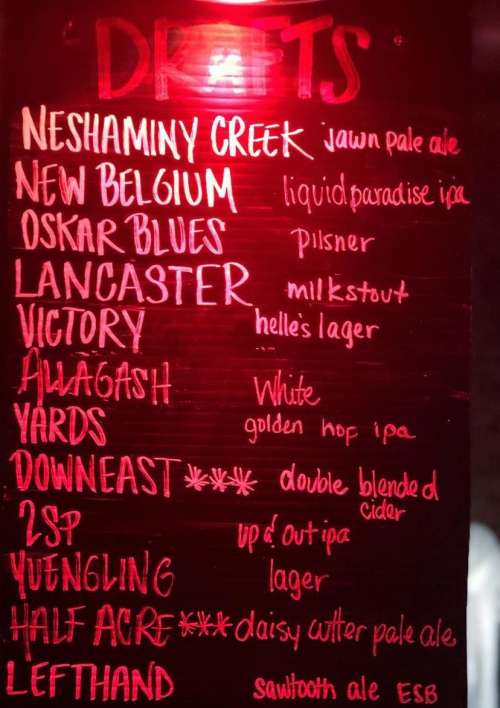 "DRAFTS"
NESHAMINY CREEK jawn pale ale
NEW BELGIUM liquid paradise ipa
OSKAR BLUES pilsner
LANCASTER milkstout
VICTORY helle's lager
ALLAGASH White
YARDS golden hop ipa
DOWNEAST *** double blended
cider
2SP up & out ipa
YUENGLING lager
HALF ACRE *** daisy cutter pale ale
LEFTHAND sawtooth ale ESB